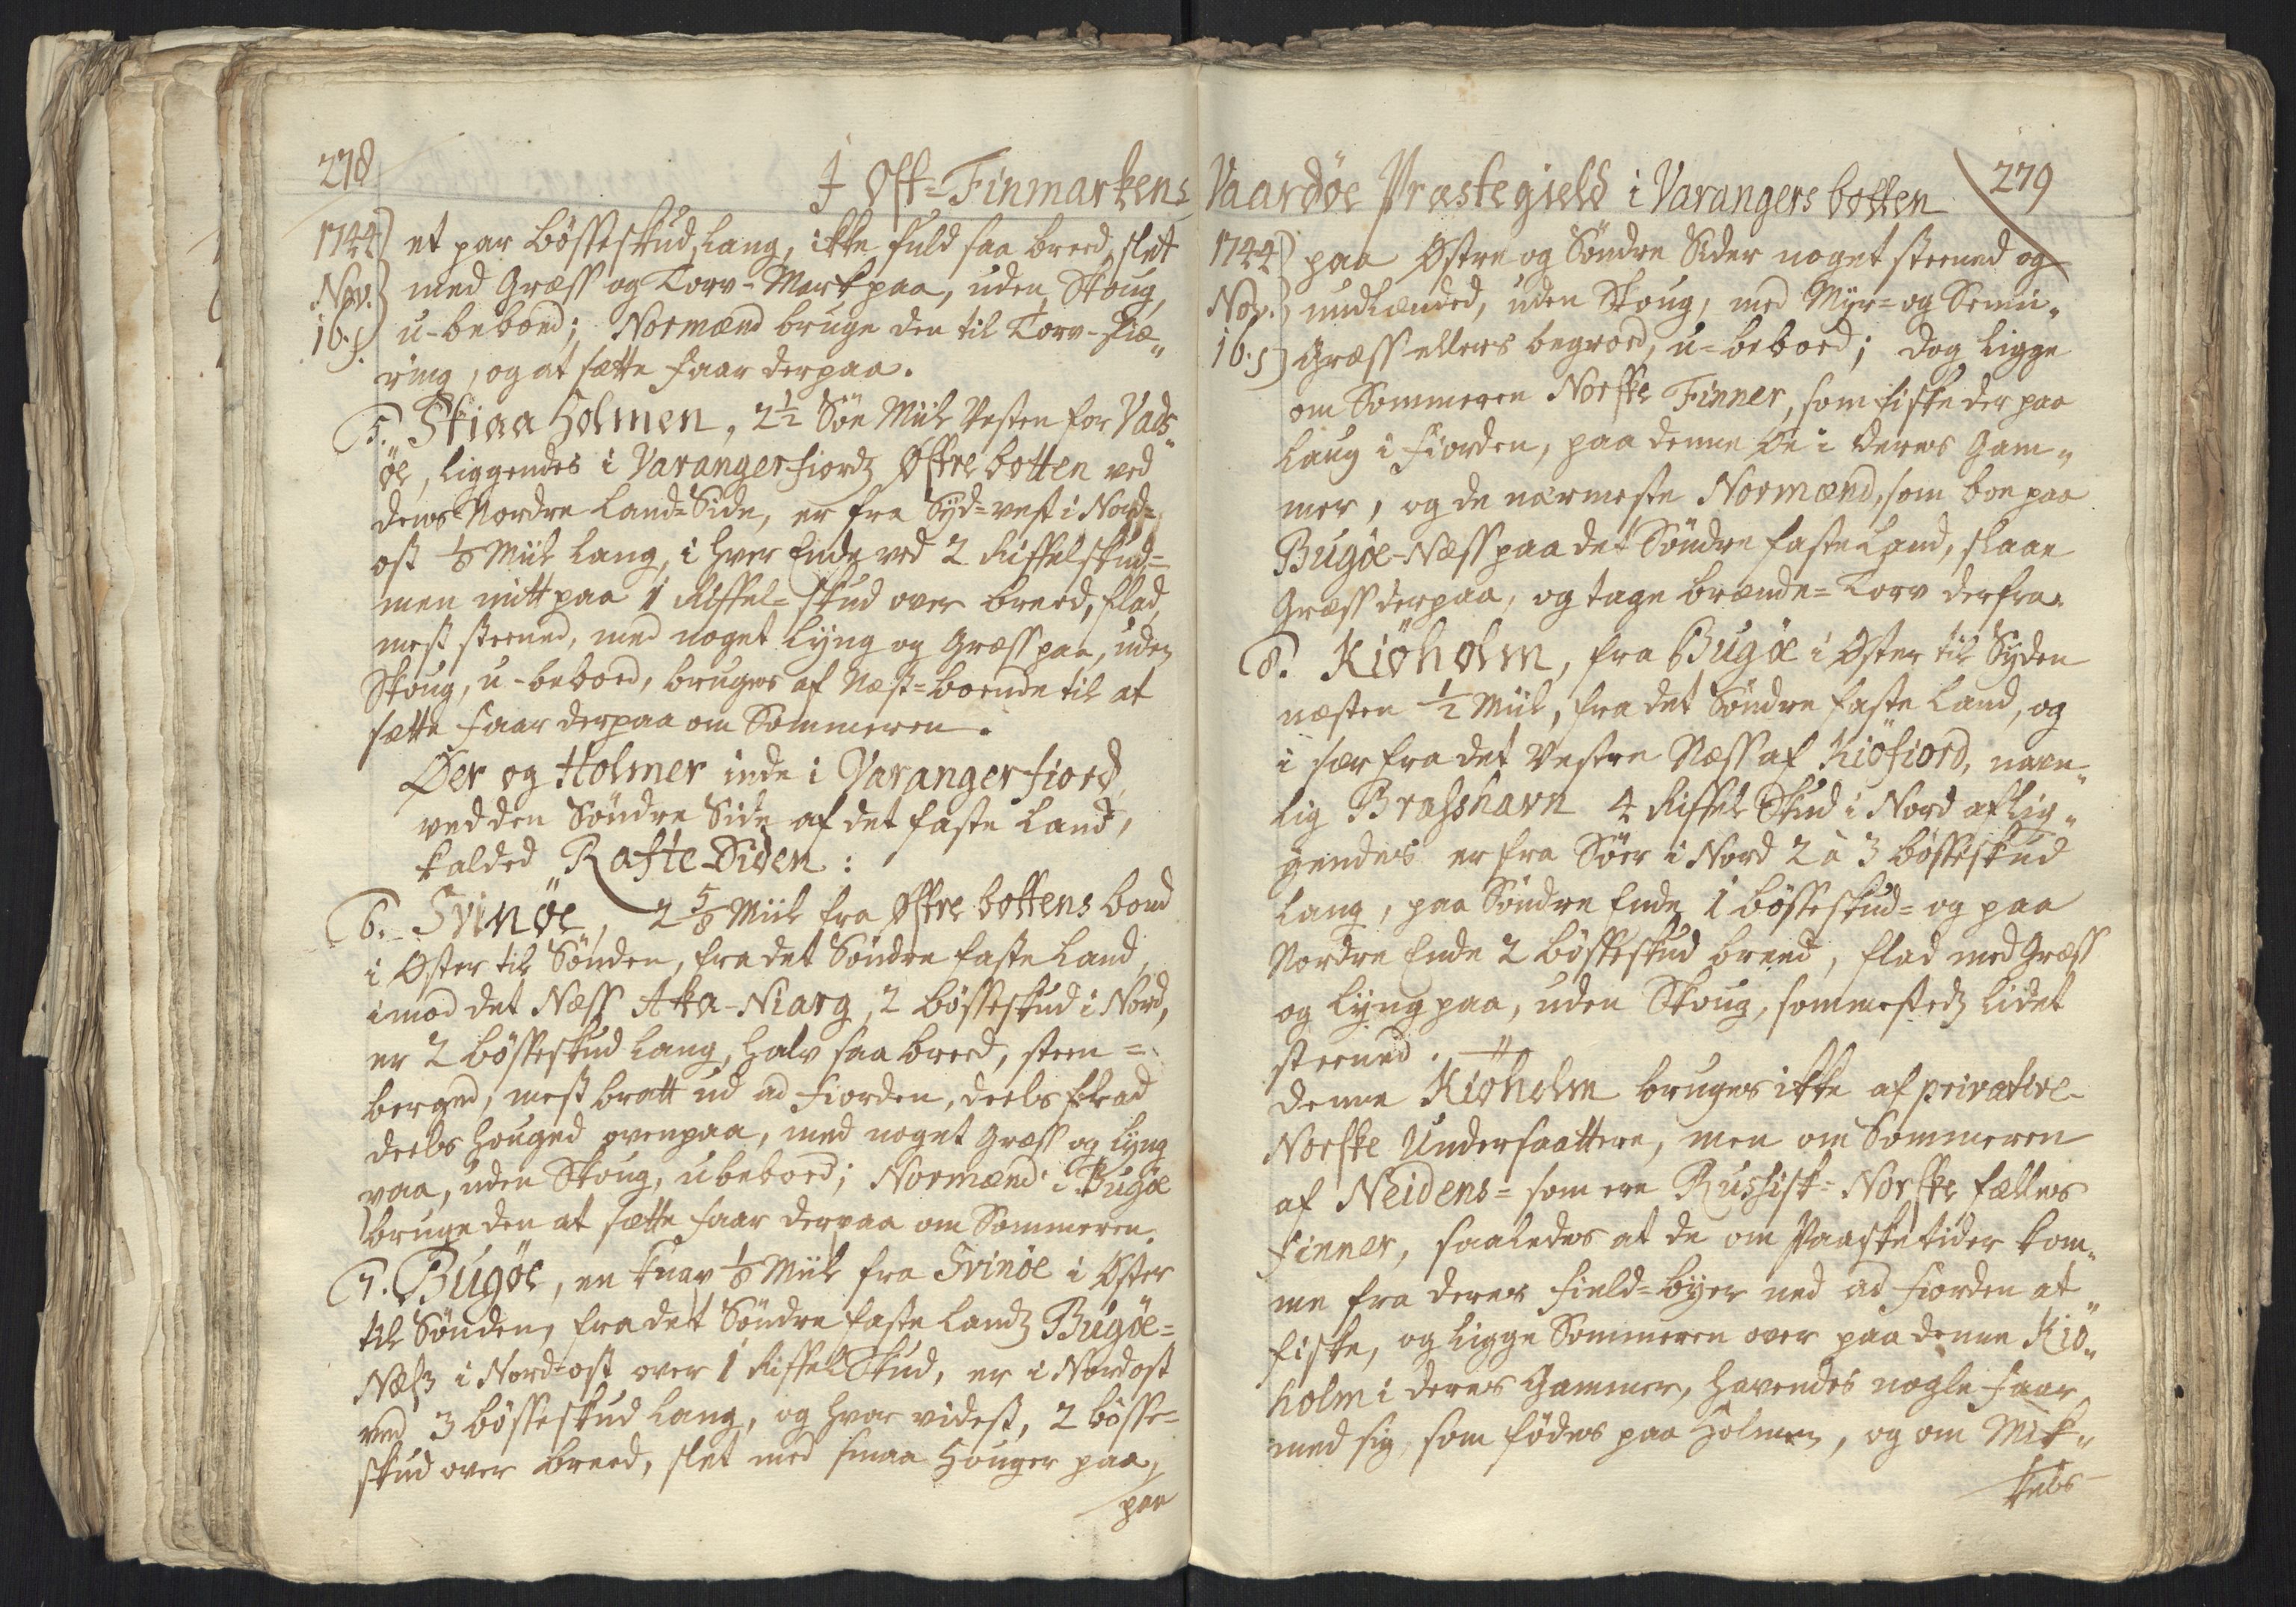 278
I Øst-Finmarkens
1744 Nov. 16.
et par bösseskud lang, ikke fuld saa breed, slet
med Græss og Torv-Mark paa, uden Skoug,
u-beboed; Normænd bruge den til Torv-skiæ„
ring, og at sætte faar derpaa.
5. Skiaa Holmen, 2½ Söe Miil Vesten for Vads„
öe, liggendes i Varangerfiords Østre botten ved
dens Nordre Land-Side, er fra Syd-vest i Nord-
ost ⅛ Miil lang, i hver Ende ved 2 Riffelskud-
men mitt paa 1 Riffel-skud over breed, flad,
mest steened, med noget lyng og Græss paa, uden
Skoug, u-beboed, bruges af Næst-boende til at
sætte faar derpaa om Sommeren.
Öer og Holmer inde i Varangerfiord,
ved den Söndre Side af det faste Land,
kalded Rafte-Siden:
6. Svinöe, 2⅝ Miil fra Østre bottens bond
i Øster til Sönden, fra det Söndre faste Land,
imod det Næss Aka-Niarg, 2 bösseskud i Nord,
er 2 bösseskud lang, halv saa breed, steen-
berged, mest bratt ud ad fiorden, deels flad
deels houged ovenpaa, med noget Græss og lyng
paa, uden Skoug, ubeboed; Normænd i Bugöe
bruge den at sætte faar derpaa om Sommeren.
7. Bugöe, en knap ⅛ Miil fra Svinöe i Øster
til Sönden, fra det Söndre faste Lands Bugöe-
Næss i Nord-ost over 1 Riffel Skud, er i Nordost
ved 3 bösseskud lang, og hvor videst, 2 bösse-
skud over breed, slet med smaa Houger paa,
paa
Vaardöe Præstegield i Varangers botten
279
1744 Nov. 16.
paa Østre og Söndre Sider noget steened og
ud, uden Skoug, med Myr- og Sennæ„
Græss ellers begroed, u-beboed; dog ligge
om Sommeren Norske Finner, som fiske der paa
Laug i fiorden, paa denne Öe i deres Gam„
mer, og de nærmeste Normænd, som boe paa
Bugöe-Næss paa det Söndre faste Land, slaae
Græss derpaa, og tage brænde-Torv derfra.
8. Kiöholm, fra Bugöe i Øster til Syden
næsten ½ Miil, fra det Söndre faste Land, og
i sær fra det Vestre Næss af Kiöfiord, navn„
lig Brasshavn 4 Riffel Skud i Nord aflig„
gendes er fra Söer i Nord 2 à 3 bösseskud
lang, paa Söndre Ende 1 bösseskud- og paa
Nordre Ende 2 bösseskud breed, flad med Græss
og lyng paa, uden Skoug, sommesteds lidet
steened.
Denne Kiöholm bruges ikke af privative
Norske Undersaattere, men om Sommeren
af Neidens- som ere Russisk-Norske fælles
Finner, saaledes at de om Paasketider kom„
me fra deres Field-byer ned ad fiorden at
fiske, og ligge Sommeren over paa denne Kiö„
holm i deres Gammer, havendes nogle faar
med sig, som födes paa Holmen, og om Mik„
kels